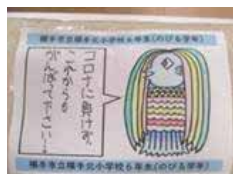 横手市立横手北小学校6年生(のびる学年)
コロナに負けず、
これからも
がんばって下さい…
横手市立横手北小学校6年生(のびる学年)